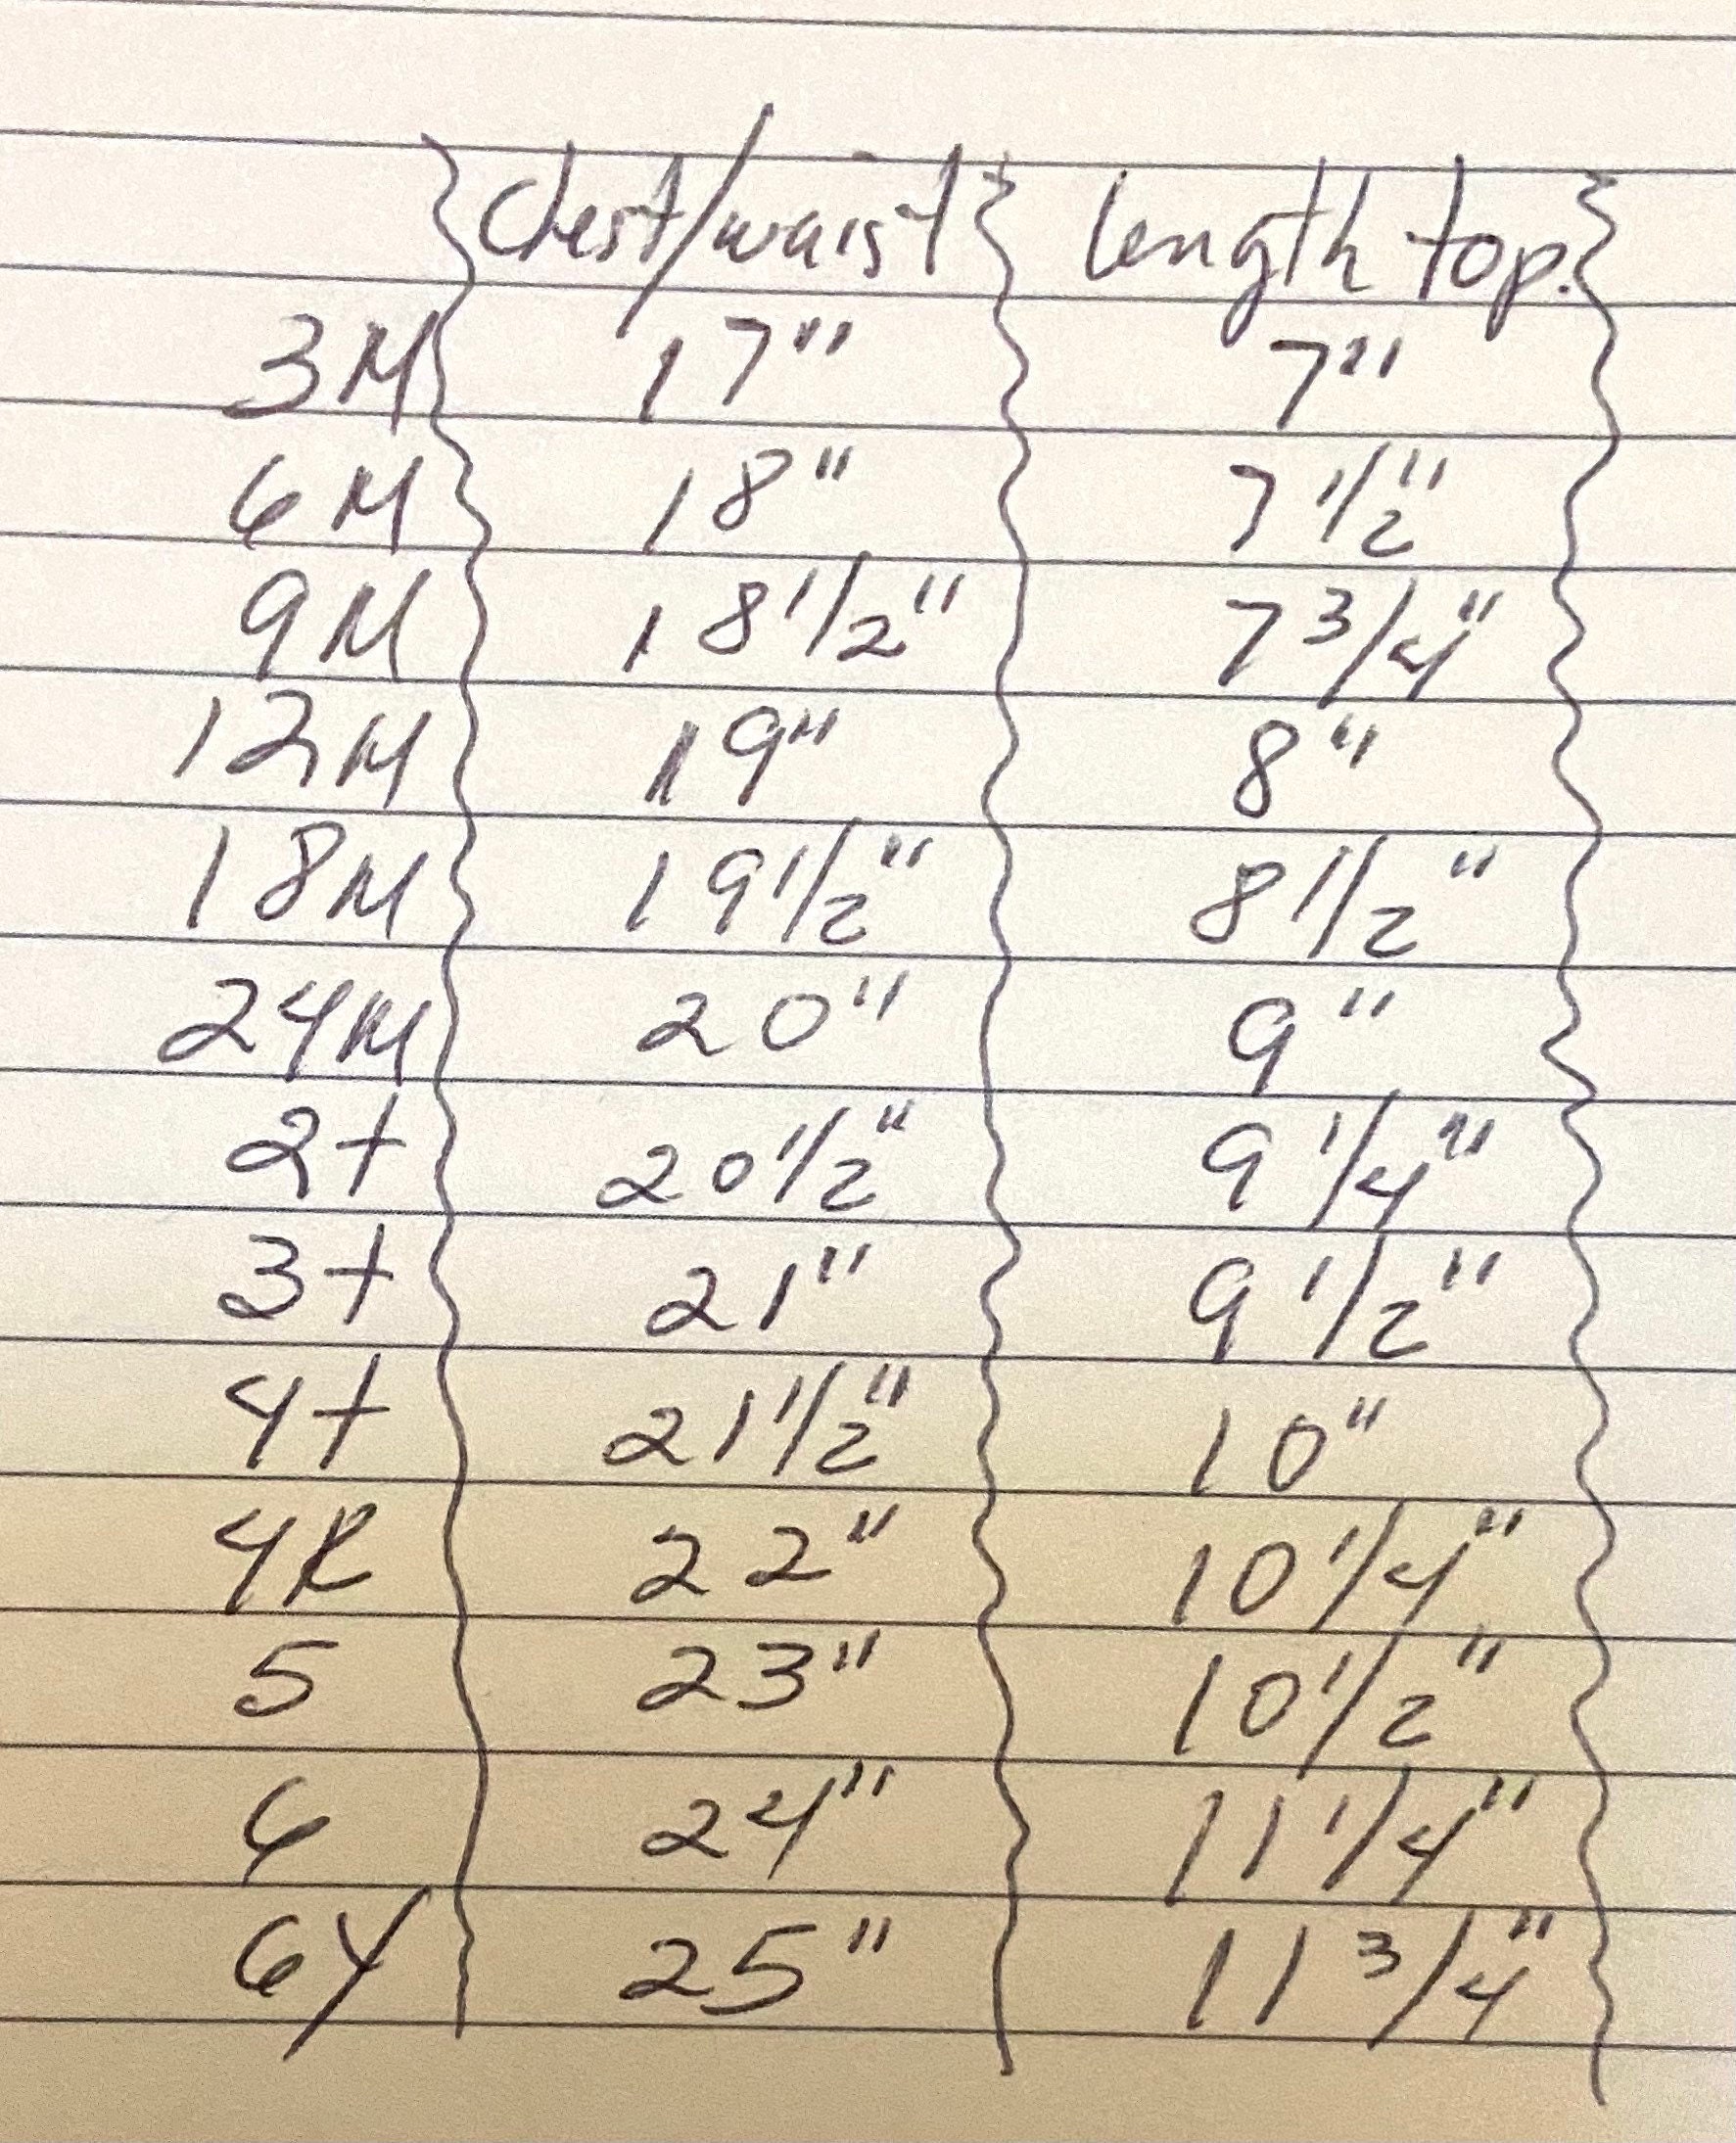 chest/waist length top.
3M 17" 7"
6M 18" 7 1/2"
9M 18 1/2" 7 3/4"
12M 19" 8"
18M 19 1/2" 8 1/2"
24M 20" 9"
2t 20 1/2" 9 1/4"
3t 21" 9 1/2"
4t 21 1/2" 10"
4R 22" 10 1/4"
5 23" 10 1/2"
6 24" 11 1/4"
6Y 25" 11 3/4"